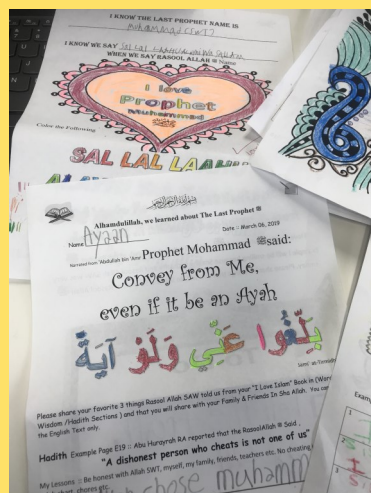 I KNOW THE LAST PROPHET NAME IS
I KNOW WE SAY
WHEN WE SAY RASOOL ALLAH ﷺ Name
I love
Prophet
Muhammad
Color the Following
SAL LAL LAAHU
Alhamdulillah, we learned about The Last Prophet ﷺ
Name Ayaan
Date : March 06, 2019
Narrated from 'Abdullah bin 'Amr Prophet Mohammad ﷺ said:
Convey from Me,
even if it be an Ayah
بَلِّغُوا عَنِّي وَلَوْ آيَةً
Please share your favorite 3 things RasoolAllah SAW told us from your "I Love Islam" Book in (Word
Wisdom /Hadith Sections ) and that you will share with your Family & Friends In Sha Allah. You can
the English Text only.
Hadith Example Page E19 :: Abu Hurayrah RA reported that the RasoolAllah ﷺ Said ,
"A dishonest person who cheats is not one of us"
My Lessons :: Be honest with Allah SWT, myself, my family, friends, teachers etc. No cheating
chores etc.
chose muhamm